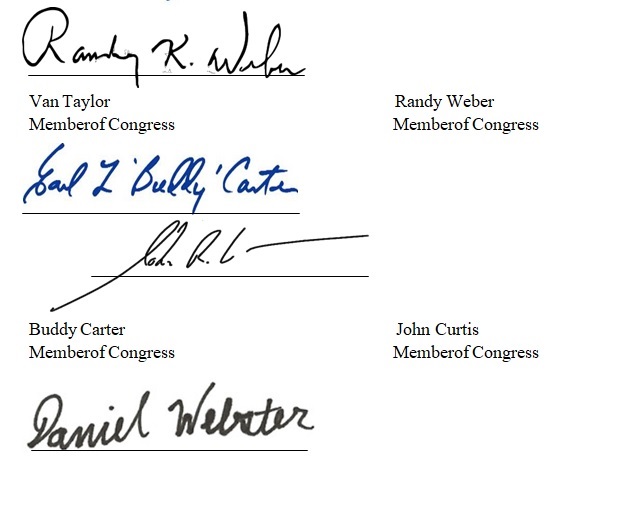 Randy K. Weber
Van Taylor Randy Weber
Memberof Congress Memberof Congress
Earl L 'Buddy' Carter
John R. C
Buddy Carter John Curtis
Memberof Congress Memberof Congress
Daniel Webster